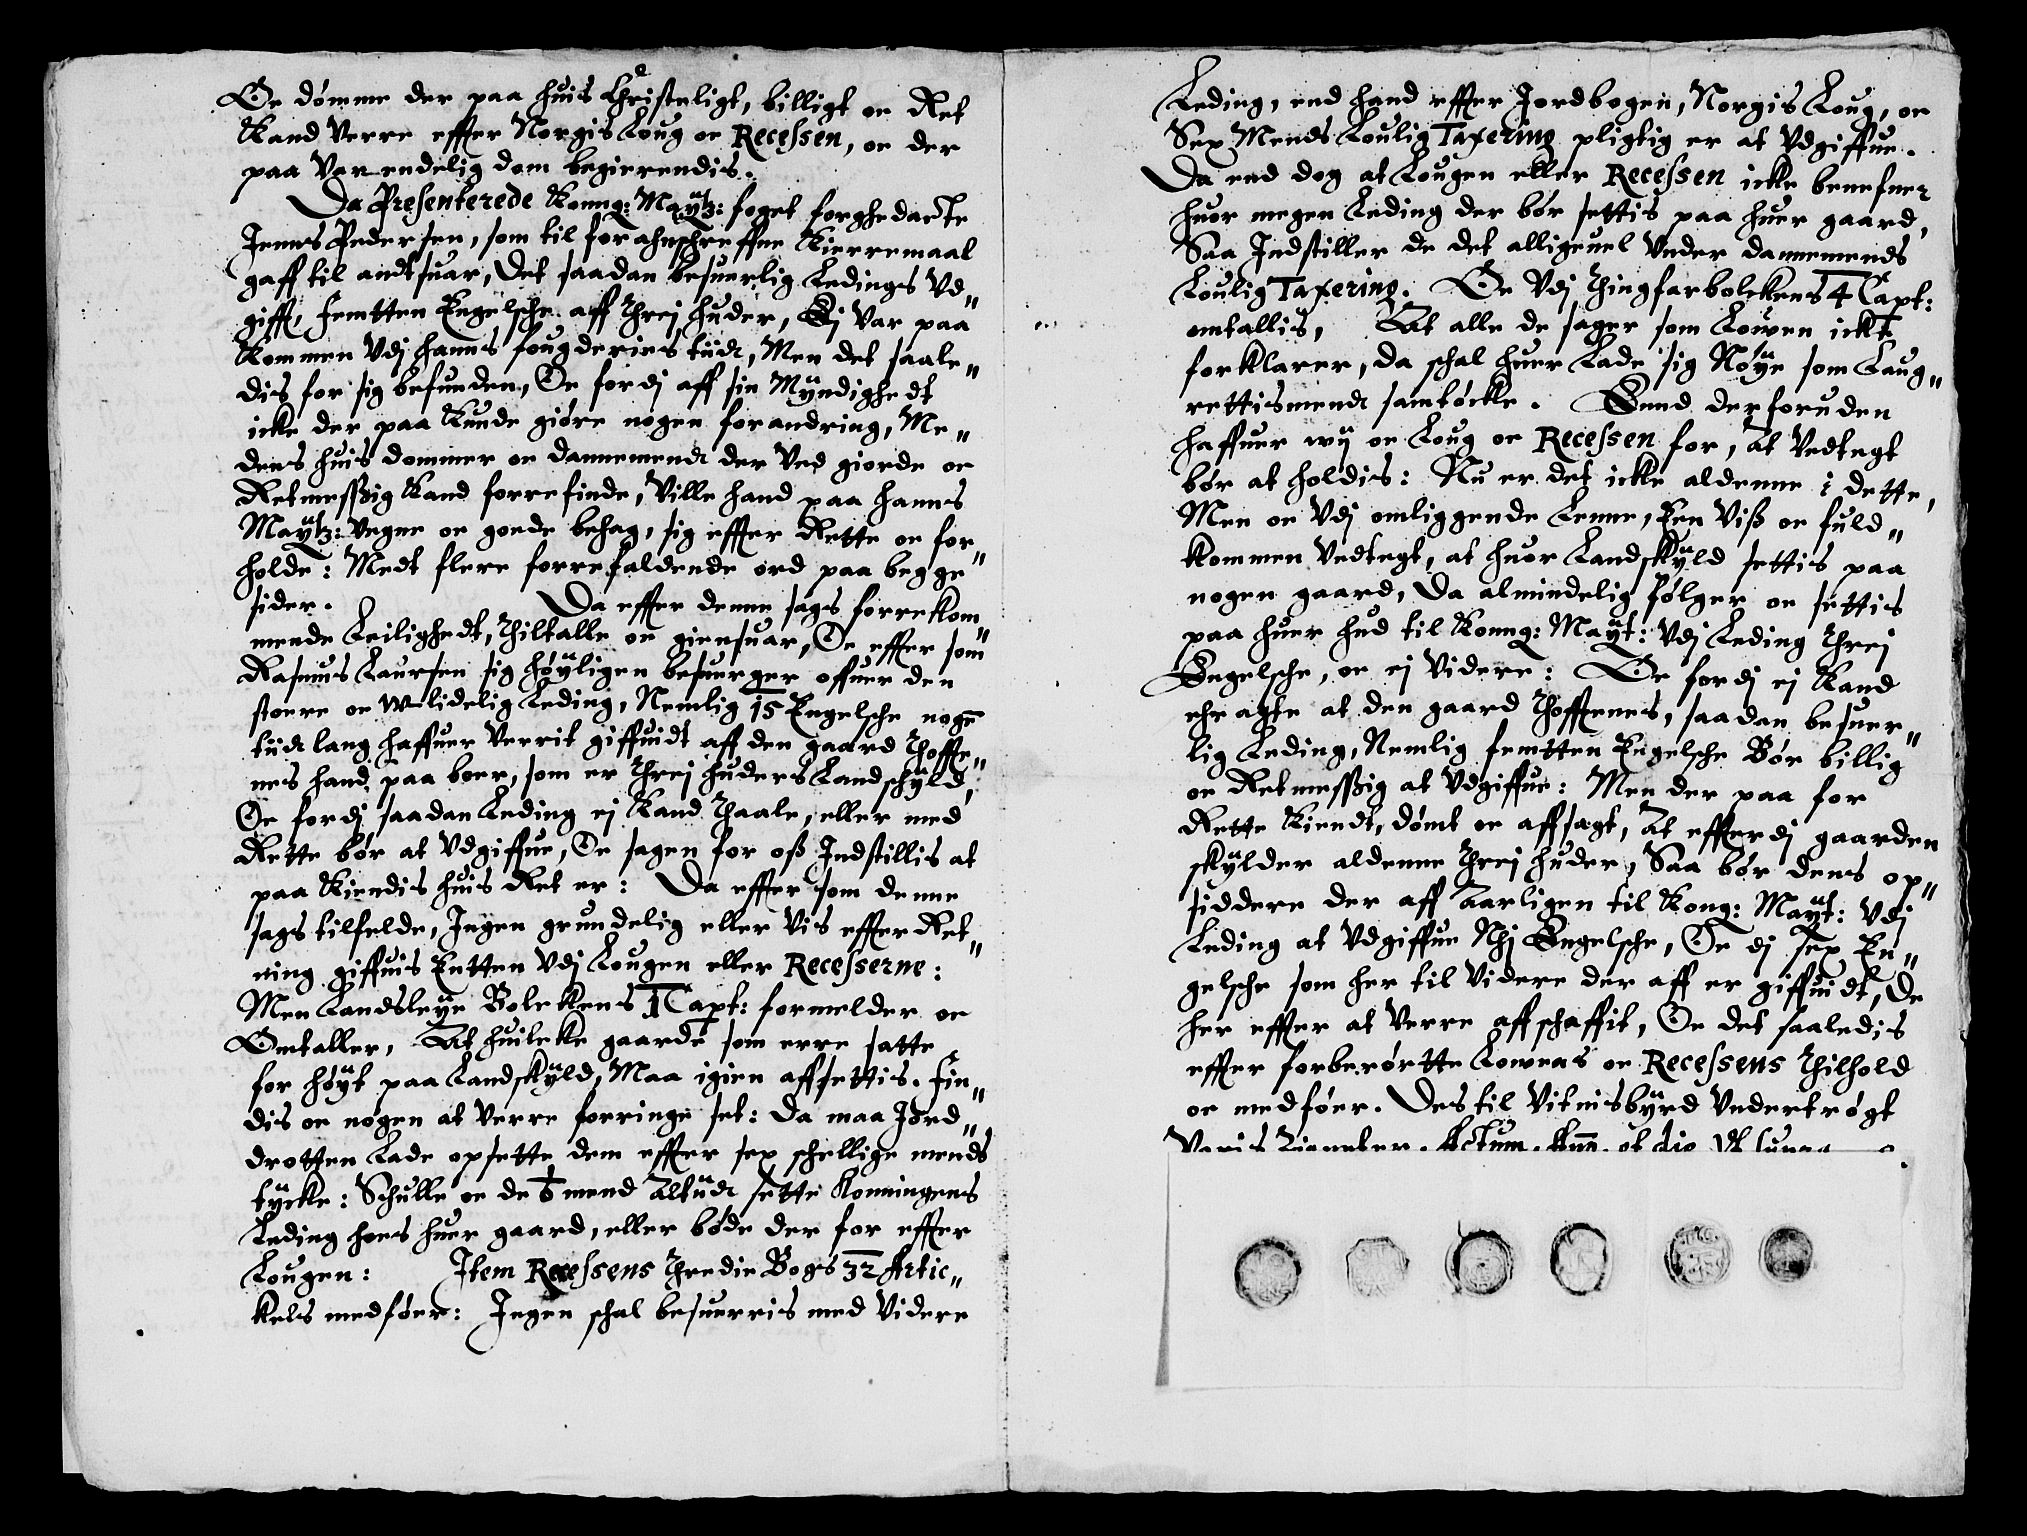 Oc dømme der paa huis Christeligt, billigt oc Ret
Kand Verre effter Norgis Loug oc Recessen, oc der
paa Vor endelig dom begierendis.
Da Presenterede Konng: Maÿtz: foget forghedacte
Jenns Pedersen, som til forahnschreffne Kierremaal
gaff til andtsuar, Det saadan besuerlig Ledings Vd„
gifft, femtten Engelsche aff Threj huder, Ej Var paa
Kommen Vdj hanns fougderies tiidt, Men det saale„
dis for sig befunden, Oc fordj aff sin Mÿndighedt
icke der paa Kunde giøre nogen forandring, Me„
dens huis dommer oc dannemendt der Ved giorde oc
Retmessßig Kand forrefinde, Ville hand paa hanns
Maÿtz: Vegne oc goede behag, sig effter Rette oc for„
holde: Medt flere forrefaldende ord paa begge
sider. Da effter denne sags forrekom„
mende Leilighedt, Thiltalle oc giensuar, Oc effter som
Rasmus Laursen sig høÿligen besuerger offuer den
stoere oc wlidelig Leding, Nemlig 15 Engelsche nogē
tiidt lang haffuer Verrit giffuidt aff den gaard Thoffte„
nes hand paa boer, som er Threj huders Landschÿld,
Oc fordj saadan Leding ej Kand Thaale, eller med
Rette bør at Vdgiffue, Oc sagen for oß Indstillis at
paa Kiendis huis Ret er: Da effter som denne
sags tilfelde, Ingen grundelig eller Vis effter Ret„
ning giffuis Entten Vdj Lougen eller Recesserne:
Men Landsleÿe Bolckens 1 Capt: formelder oc
Omtaller, At huilcke gaarde som erre satte
for høÿt paa Landskÿld, Maa igien affsettis. Fin„
dis oc nogen at Verre forringe set: Da maa Jord„
drotten Lade opsette dem effter sex schellige mends
tÿcke: Schulle oc de 6 mend Altiidt sette Konningens
Leding hoes huer gaard, eller bøde der for effter
Lougen: Item Recessens Thredie Bogs 32 Artic„
kels medføer: Ingen schal besuerris med Videre
Leding, end hand effter Jordbogen, Norgis Loug, oc
Sex Mends Loulig Taxering pligtig er at Vdgiffue.
Da end dog at Lougen eller Recessen icke benefner
huor megen Leding der bør settis paa huer gaard,
Saa Indstiller de det alligeuel Vnder dannemends
Loulig Taxering. Oc Vdj Thingfarbolckens 4 Capt:
omtallis, At alle de sager som Lowen ickē
forklarer, da schal huer Lade sig Nøÿe som Laug„
rettismendt samtÿcke. Ennd derforuden
haffuer wÿ oc Loug oc Recessen for, At Vedtegt
bør at holdis: Nu er det icke aldenne i dette,
Men oc Vdj omliggende Lenne, Een Viß oc fuld„
kommen Vedtegt, at huor Landskÿld settis paa
nogen gaard, Da almindelig følger oc settis
paa huer hud til Konng: Maÿt: Vdj Leding Threj
Engelsche, oc ej Videre: Oc fordj ej Kand
ehragte at den gaard Thofftenes, saadan besuer„
lig Leding, Nemlig femtten Engelsche Bør billig
oc Retmessßig at Vdgiffue: Men der paa for
Rette Kiendt, dømt oc affsagt, At effterdj gaarden
skÿlder aldenne Threj huder, Saa bør dens op„
siddere der aff Aarligen til Kong: Maÿt: Vdj
Leding at Vdgiffue Nhj Engelsche, Oc dj sex En„
gelsche som her til Videre der aff er giffuidt, De
her effter at Verre affschaffit, Oc det saaledis
effter forberørtte Lowens oc Recessens Thilhold
oc medføer. Des til Vitnisbÿrd Vndertrÿgt
Voris Zigneter. Actum. Ann. et die Vt supra